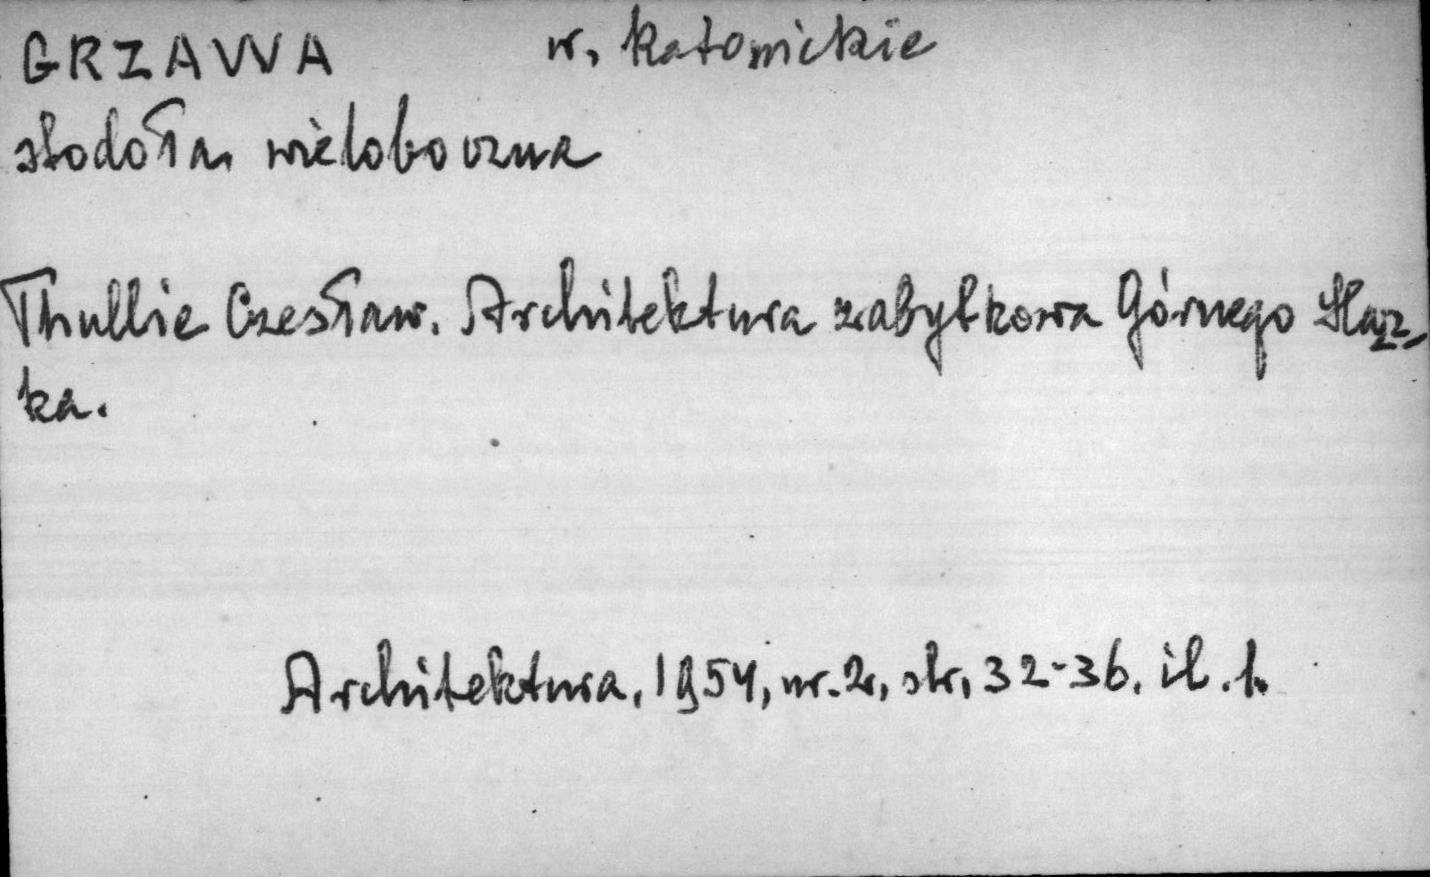 GRZAWA w. katowickie
stodoła wieloboczna
Thullie Czesław. Architektura zabytkowa Górnego Śląs-
ka.
Architektura, 1954, nr. 2, str, 32-36. il. 1.